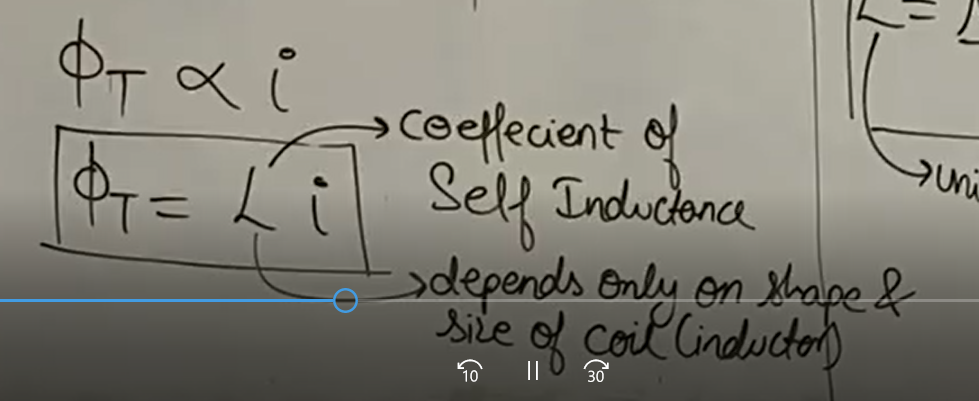 ϕT ∝ i
ϕT = L i
coeffecient of
Self Inductance
depends only on shape &
size of coil (inductor)
L =
10
30